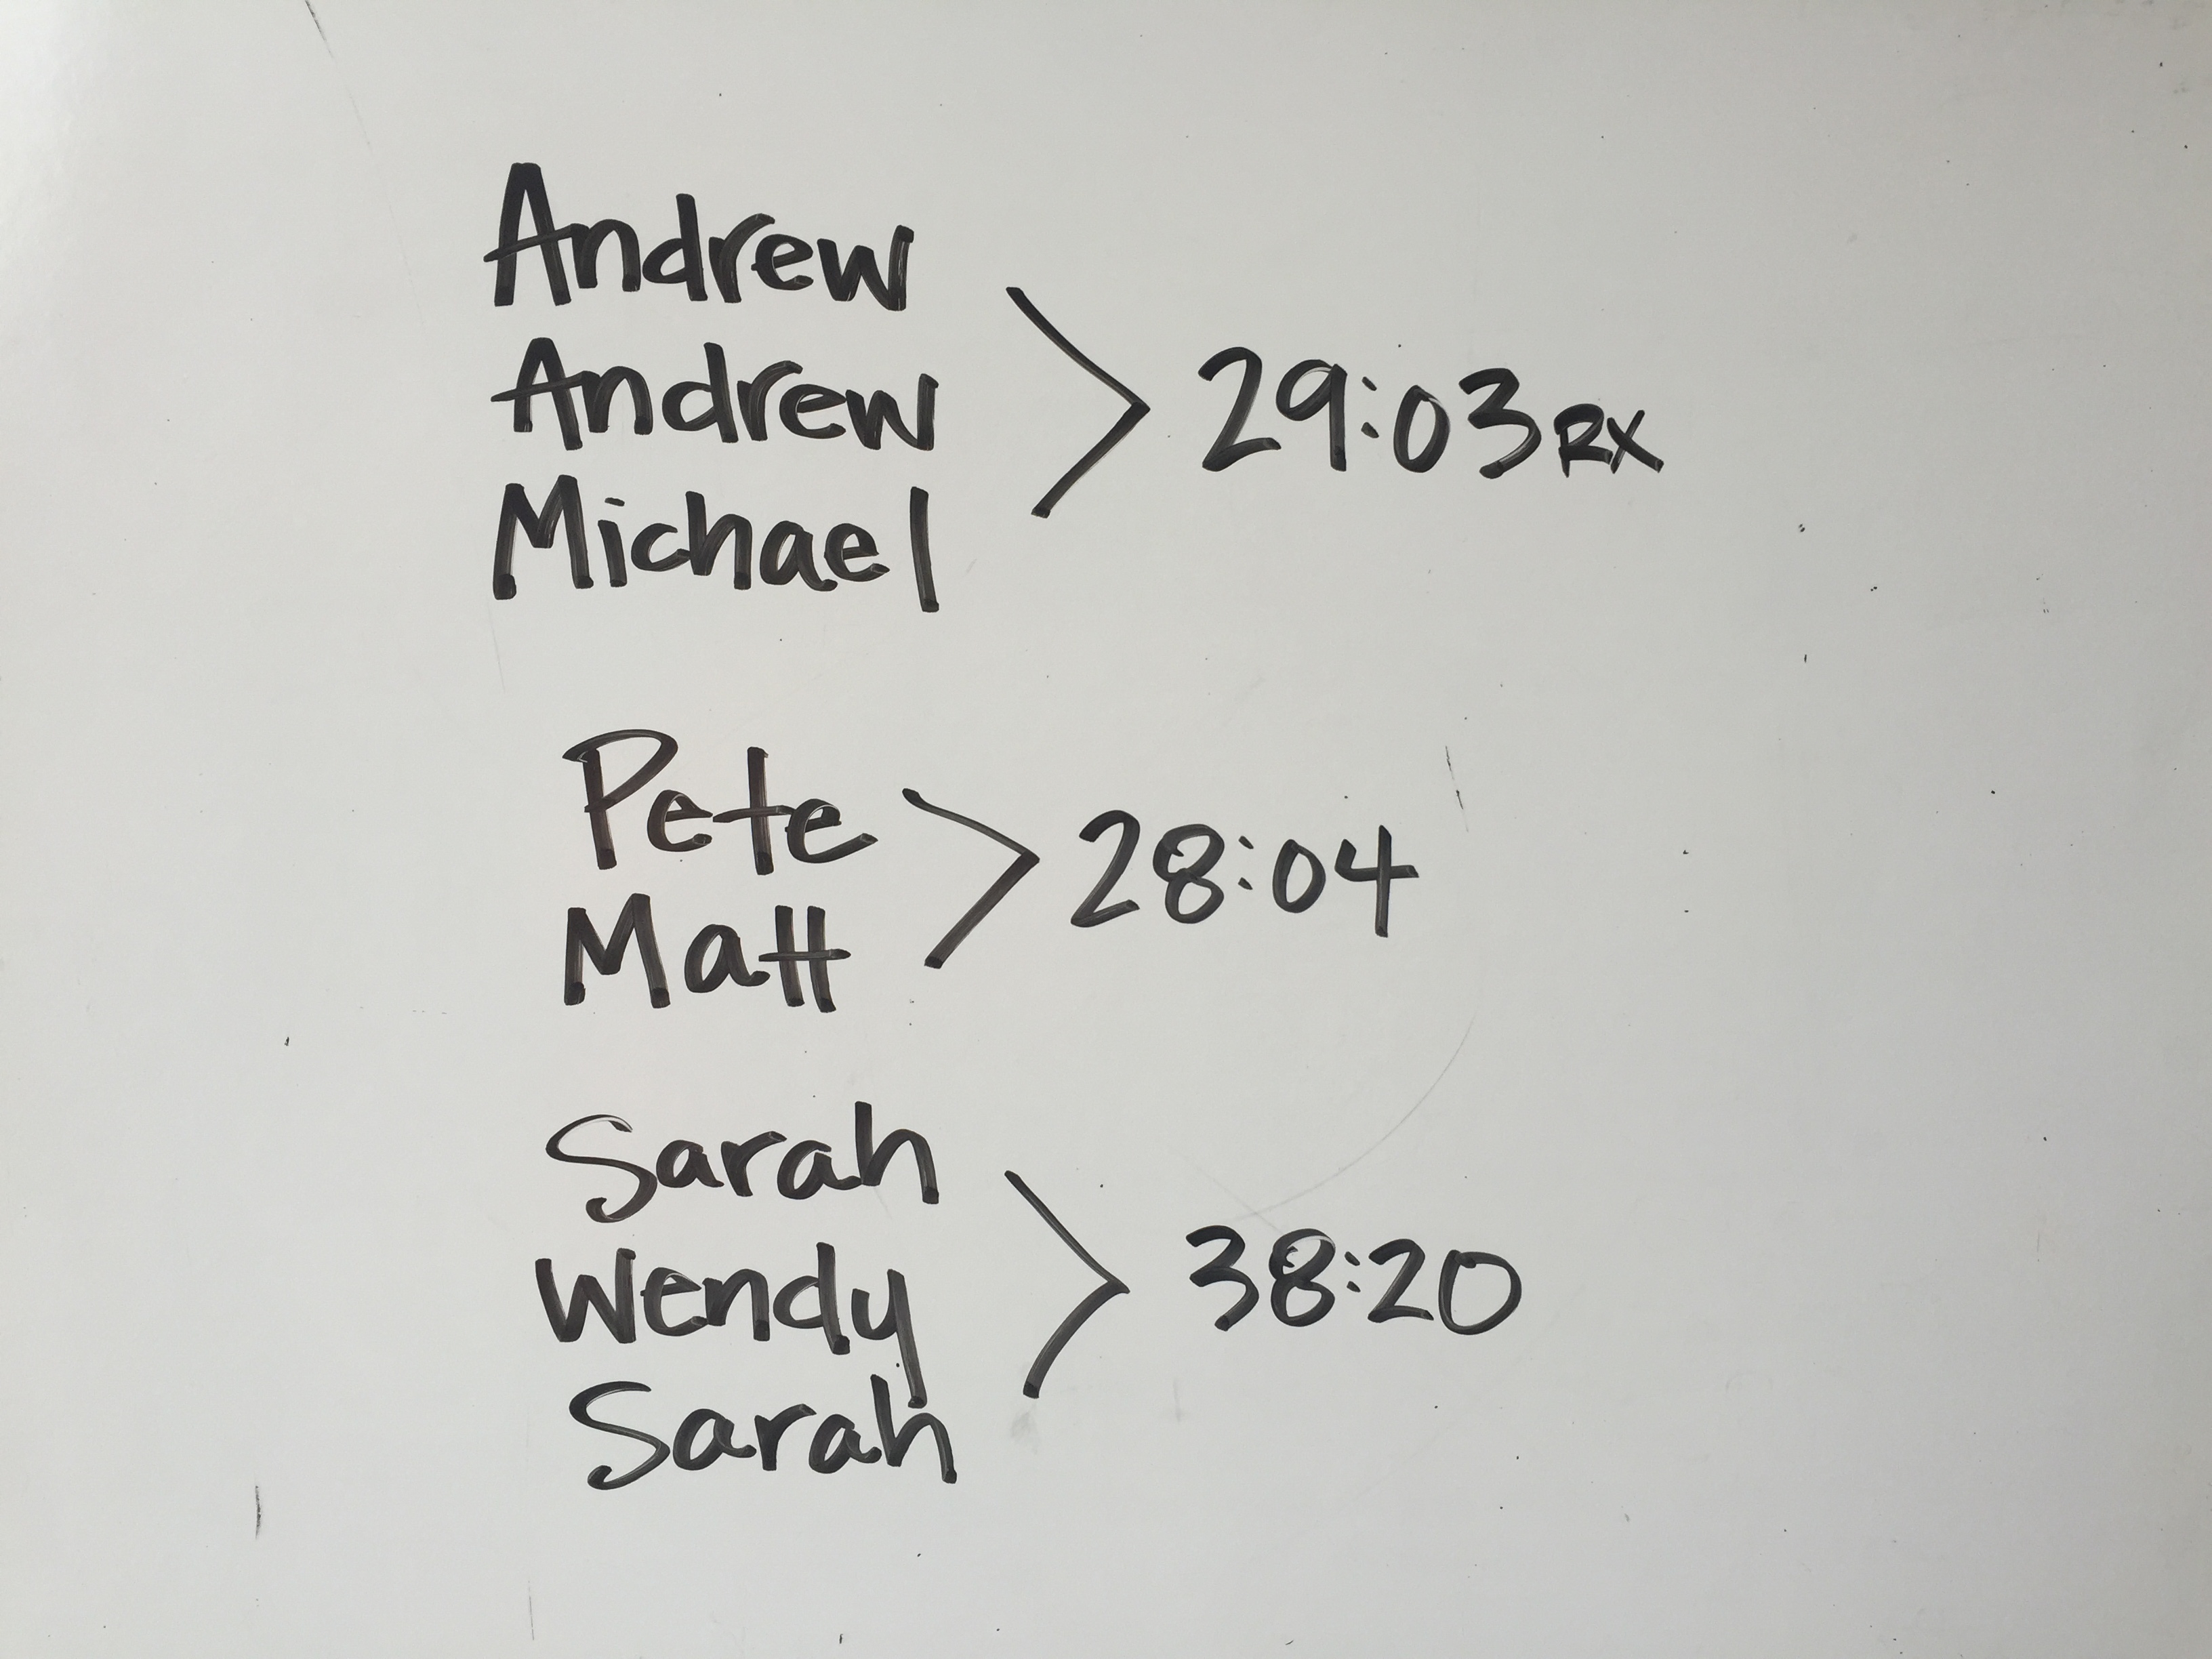 Andrew
Andrew
Michael
> 29:03 RX
Pete
Matt
> 28:04
Sarah
Wendy
Sarah
> 38:20